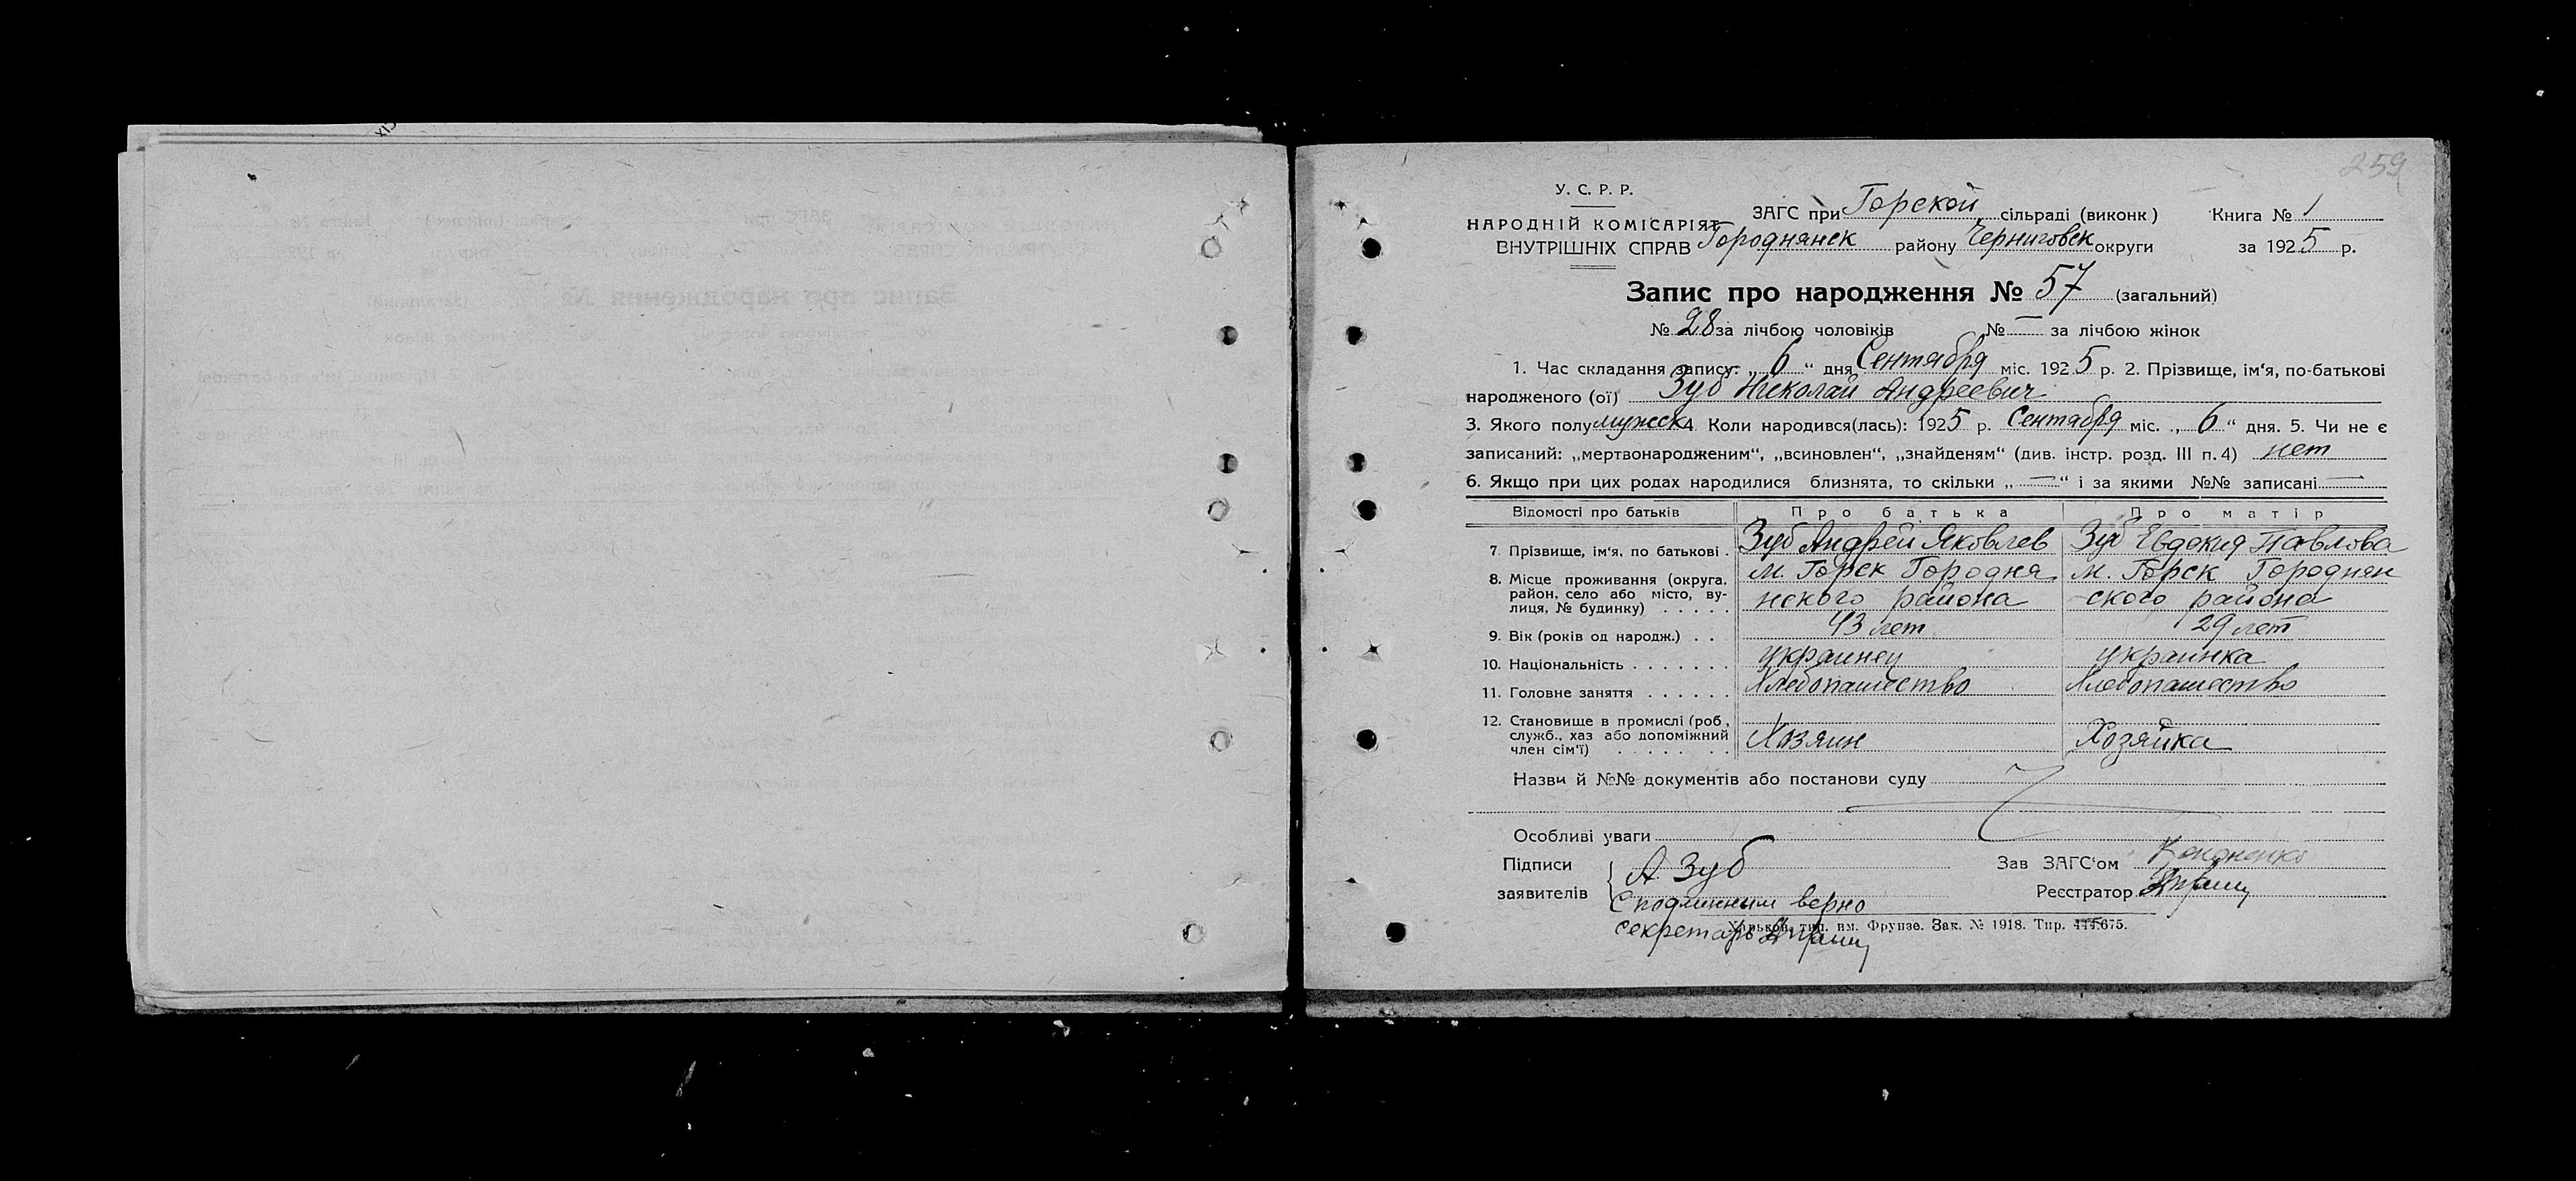 259
У. С. Р. Р.
НАРОДНІЙ КОМІСАРІЯТ
ВНУТРІШНІХ СПРАВ
ЗАГС при Горской сільраді (виконк) Книга № 1
Городнянск району Черниговск округи за 1925 р.
Запис про народження № 57 (загальний)
№ 28 за лічбою чоловіків № — за лічбою жінок
1. Час складання запису: „ 6 “ дня Сентября міс. 1925 р. 2. Прізвище, ім‘я, по-батькові
народженого (ої) Зуб Николай Андреевич
3. Якого полу мужск 4. Коли народився(лась): 1925 р. Сентября міс. „ 6 “ дня. 5. Чи не є
записаний: „мертвонародженим“, „всиновлен“, „знайденям“ (див. інстр. розд. III п. 4) нет
6. Якщо при цих родах народилися близнята, то скільки „ — “ і за якими №№ записані —
Відомості про батьків Про батька Про матір
7. Прізвище, ім‘я, по батькові . Зуб Андрей Яковлев Зуб Евдокия Павлова
8. Місце проживання (округа, район, село або місто, ву-лиця, № будинку) . . . . . м. Горск Городня м. Горск Городнян
нского района ского района
9. Вік (років од народж.) . . 43 лет 29 лет
10. Національність . . . . . . . украинец украинка
11. Головне заняття . . . . . . Хлебопашество Хлебопашество
12. Становище в промислі (роб, служб., хаз або допоміжний член сім‘ї) . . . . . . . Хозяин Хозяйка
Назви й №№ документів або постанови суду
Особливі уваги
Підписи заявителів А. Зуб
Зав ЗАГС‘ом
Реєстратор
С подлинным верно
Секретарь
Харьков, тип. им. Фрунзе. Зак. № 1918. Тир. 675.